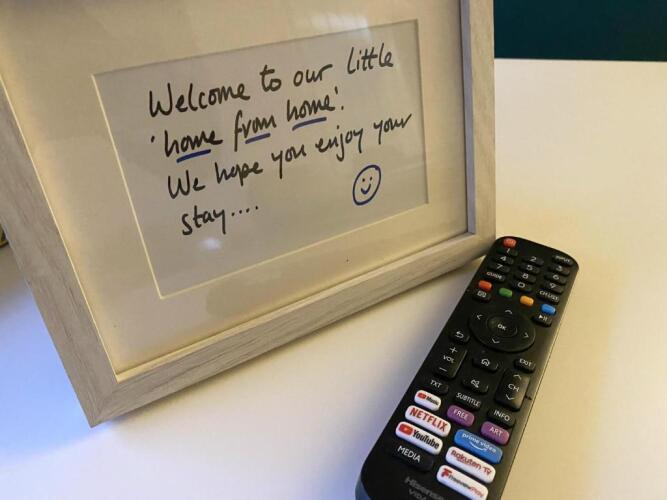 Welcome to our little
'home from home'.
We hope you enjoy your
stay....
INPUT
1 2 3
4 5 6
7 8 9
GUIDE 0 CH LIST
OK
+ EXIT
VOL CH
-
TXT SUBTITLE INFO
Music FREE ART
NETFLIX prime video
YouTube Rakuten TV
MEDIA FreeviewPlay
Hisense